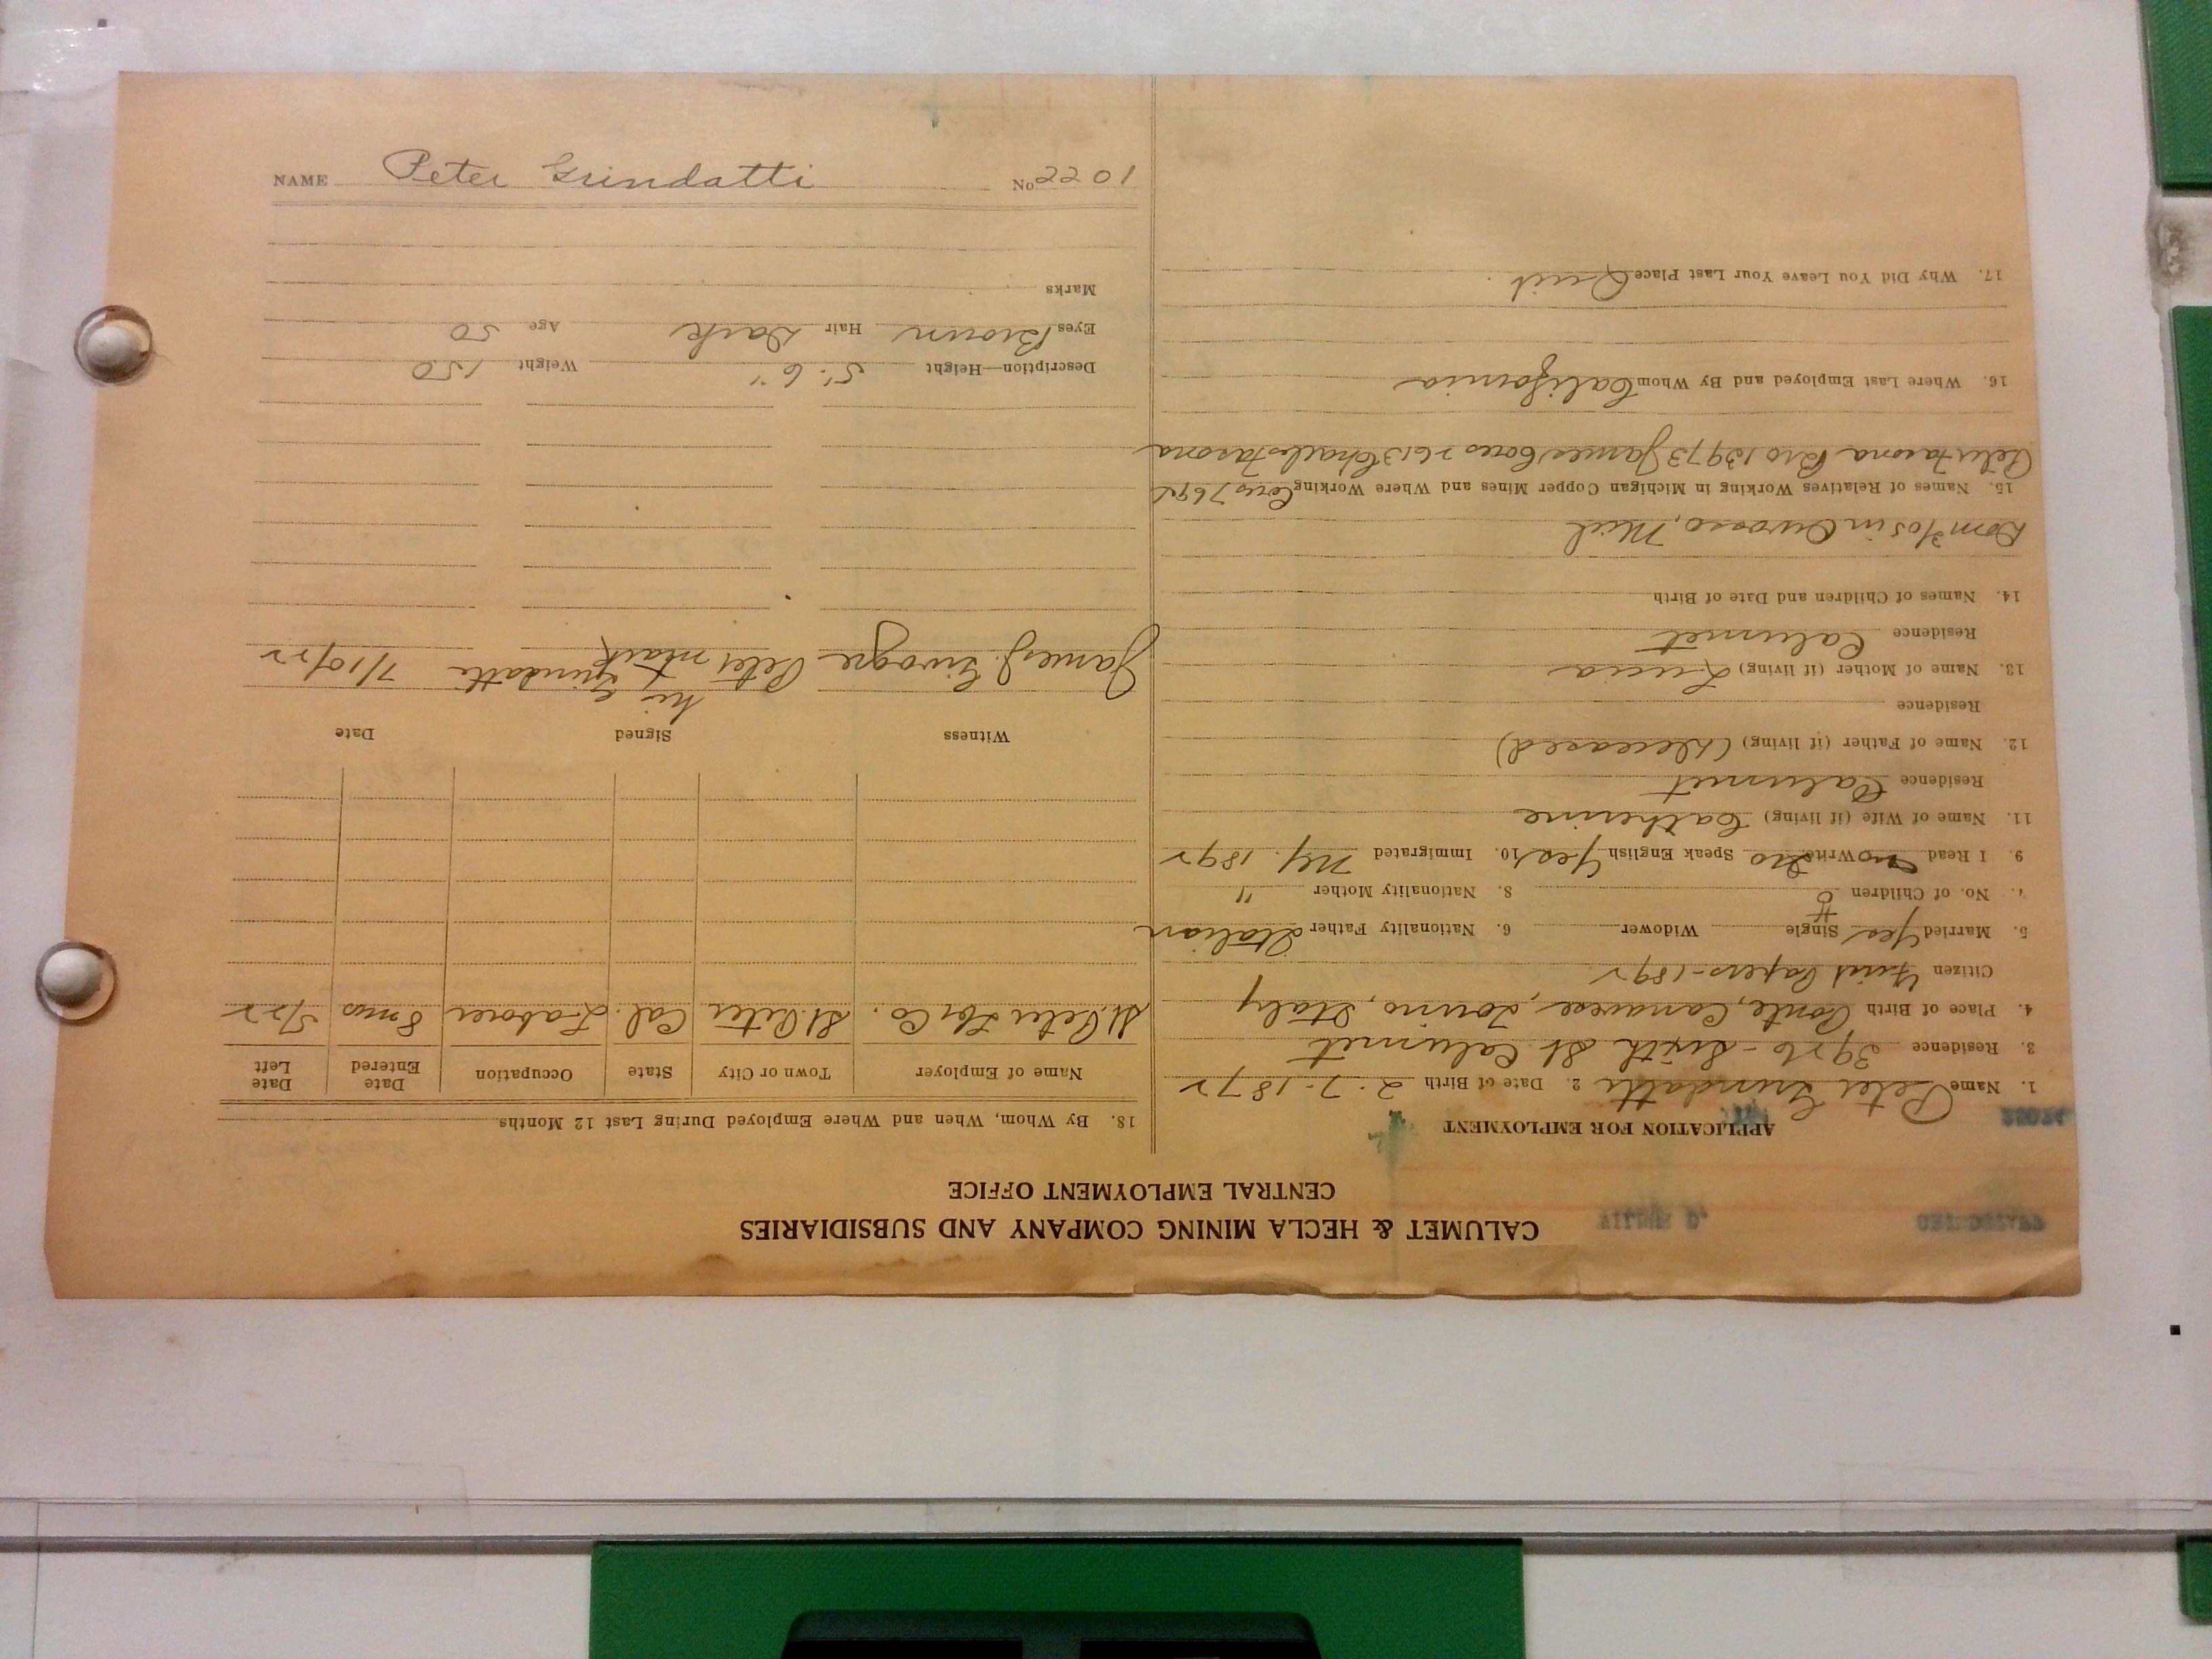 CALUMET & HECLA MINING COMPANY AND SUBSIDIARIES
CENTRAL EMPLOYMENT OFFICE
APPLICATION FOR EMPLOYMENT
1. Name Peter Grindatti 2. Date of Birth 2-7-1872
3. Residence 3926-Sixth St Calumet
4. Place of Birth Ponte, Canavese, Torino, Italy
Citizen First Papers-1892
5. Married Yes Single Widower 6. Nationality Father Italian
7. No. of Children 0 8. Nationality Mother "
9. I Read no Write no Speak English Yes 10. Immigrated N.Y. 1892
11. Name of Wife (if living) Catherine
Residence Calumet
12. Name of Father (if living) (deceased)
Residence
13. Name of Mother (if living) Lucia
Residence Calumet
14. Names of Children and Date of Birth
in Owosso, Mich
15. Names of Relatives Working in Michigan Copper Mines and Where Working
Peter Tarona Bro 13973 James Cous 7613 Charles Tarona
16. Where Last Employed and By Whom California
17. Why Did You Leave Your Last Place Quit
18. By Whom, When and Where Employed During Last 12 Months
Name of Employer Town or City State Occupation Date Entered Date Left
St. Peter Lbr Co. St. Peter Cal. Laborer 8 mos 5/22
Witness Signed Date
his
James J. Givogre Peter X Grindatti 7/10/22
mark
Description—Height 5' 6" Weight 150
Eyes Brown Hair Dark Age 50
Marks
NAME Peter Grindatti No 2201